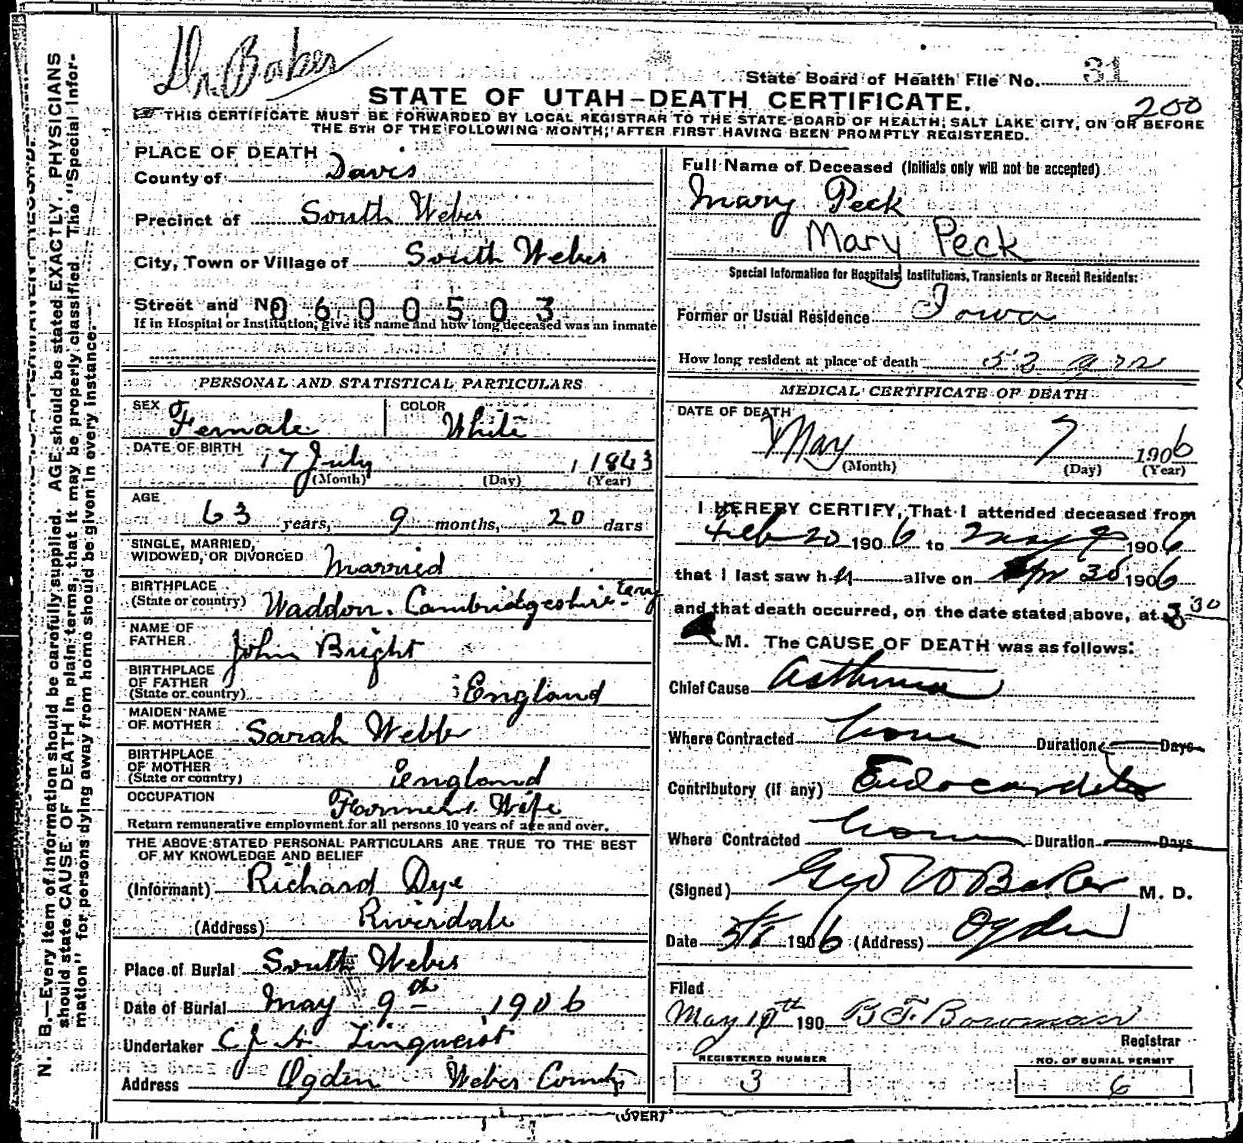 Dr. Baker
State Board of Health File No. 31
STATE OF UTAH–DEATH CERTIFICATE.
200
THIS CERTIFICATE MUST BE FORWARDED BY LOCAL REGISTRAR TO THE STATE BOARD OF HEALTH, SALT LAKE CITY, ON OR BEFORE
THE 5TH OF THE FOLLOWING MONTH, AFTER FIRST HAVING BEEN PROMPTLY REGISTERED.
N. B.—Every item of information should be carefully supplied. AGE should be stated EXACTLY. PHYSICIANS
should state CAUSE OF DEATH in plain terms, that it may be properly classified. The "Special Infor-
mation" for persons dying away from home should be given in every instance.
PLACE OF DEATH
County of Davis
Precinct of South Weber
City, Town or Village of South Weber
Street and No 0600503
If in Hospital or Institution, give its name and how long deceased was an inmate
PERSONAL AND STATISTICAL PARTICULARS
SEX Female COLOR White
DATE OF BIRTH 17 July 1843
(Month) (Day) (Year)
AGE 63 years, 9 months, 20 days
SINGLE, MARRIED,
WIDOWED, OR DIVORCED Married
BIRTHPLACE
(State or country) Waddon. Cambridgeshire Eng
NAME OF
FATHER John Bright
BIRTHPLACE
OF FATHER
(State or country) England
MAIDEN NAME
OF MOTHER Sarah Webb
BIRTHPLACE
OF MOTHER
(State or country) England
OCCUPATION Farmers Wife
Return remunerative employment for all persons 10 years of age and over.
THE ABOVE STATED PERSONAL PARTICULARS ARE TRUE TO THE BEST
OF MY KNOWLEDGE AND BELIEF
(Informant) Richard Dye
(Address) Riverdale
Place of Burial South Weber
Date of Burial May 9th 1906
Undertaker Linquist
Address Ogden Weber County
Full Name of Deceased (Initials only will not be accepted)
Mary Peck
Mary Peck
Special Information for Hospitals, Institutions, Transients or Recent Residents:
Former or Usual Residence Iowa
How long resident at place of death 52 yrs
MEDICAL CERTIFICATE OF DEATH
DATE OF DEATH
May 7 1906
(Month) (Day) (Year)
I HEREBY CERTIFY, That I attended deceased from
Feb 20 1906 to May 1906
that I last saw her alive on Apr 30 1906
and that death occurred, on the date stated above, at 3 30
A M. The CAUSE OF DEATH was as follows:
Chief Cause Asthma
Where Contracted home Duration Days
Contributory (if any) Endocarditis
Where Contracted home Duration Days
(Signed) Geo W Baker M. D.
Date 5/8 1906 (Address) Ogden
Filed
May 10th 190 B F Bowman
Registrar
REGISTERED NUMBER
3
NO. OF BURIAL PERMIT
6
(OVER)